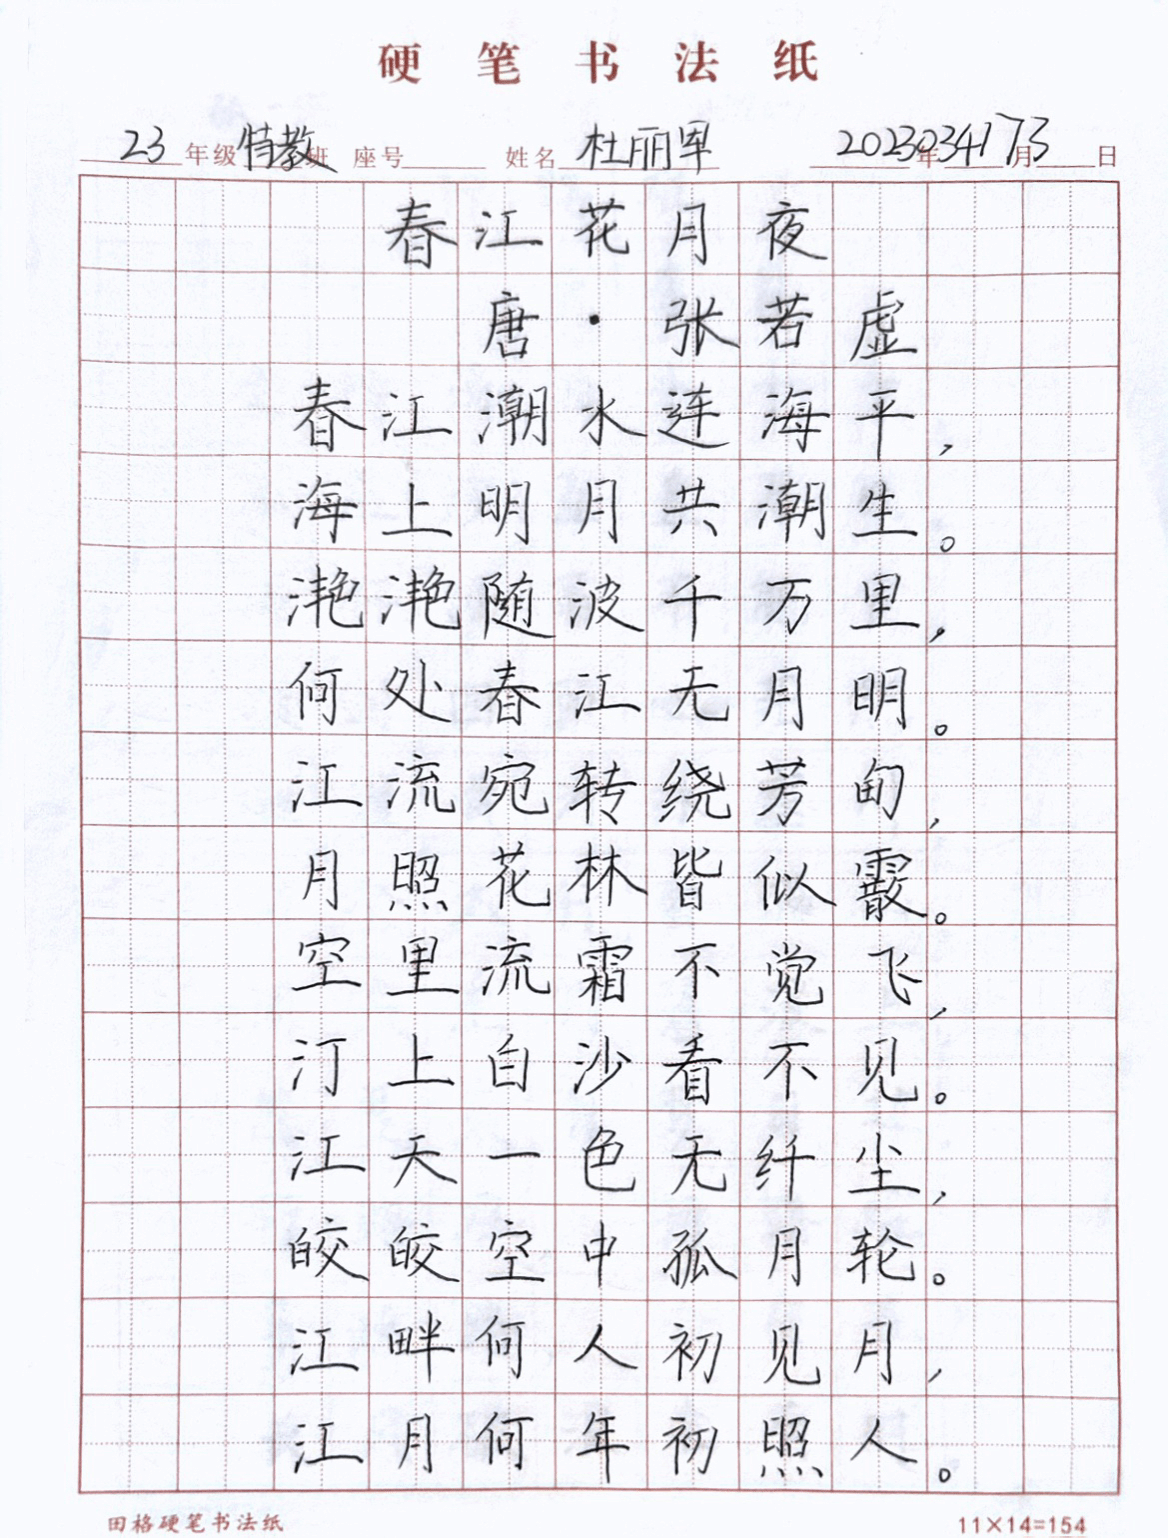 硬笔书法纸
23年级特教班 座号 姓名杜丽军 2023034173年月日
春江花月夜
唐·张若虚
春江潮水连海平,
海上明月共潮生。
滟滟随波千万里,
何处春江无月明。
江流宛转绕芳甸,
月照花林皆似霰。
空里流霜不觉飞,
汀上白沙看不见。
江天一色无纤尘,
皎皎空中孤月轮。
江畔何人初见月,
江月何年初照人。
田格硬笔书法纸 11×14=154